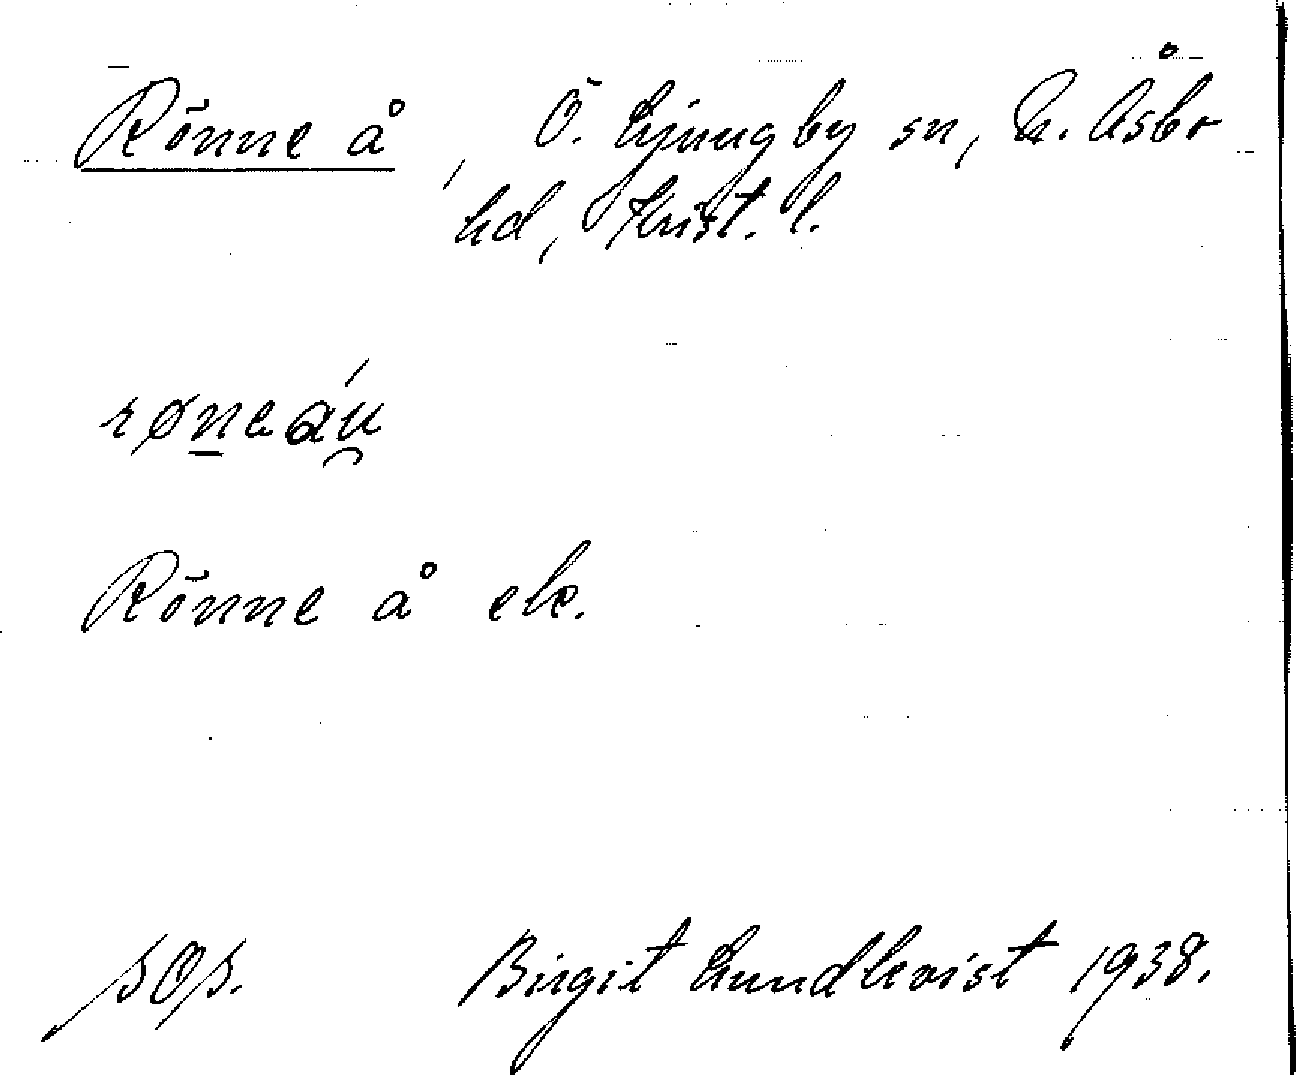 Rönne å, Ö. Ljungby sn, N. Åsbo
hd, Krist. l.
røn̲eáu̯
Rönne å ek.
sOs.
Birgit Lundkvist 1938.